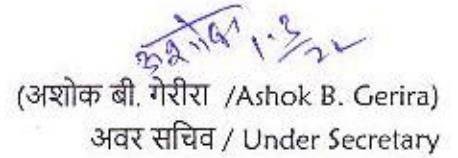 अशोक
1.3/22
(अशोक बी. गेरीरा /Ashok B. Gerira)
अवर सचिव / Under Secretary